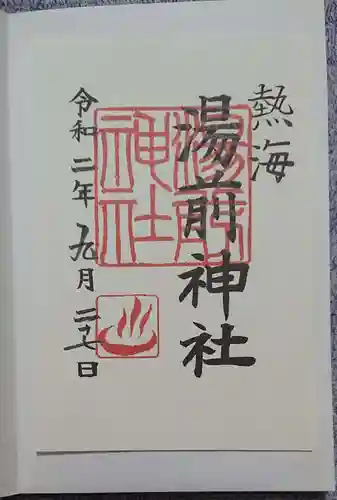 熱海
湯前神社
令和二年九月二十七日
湯前神社